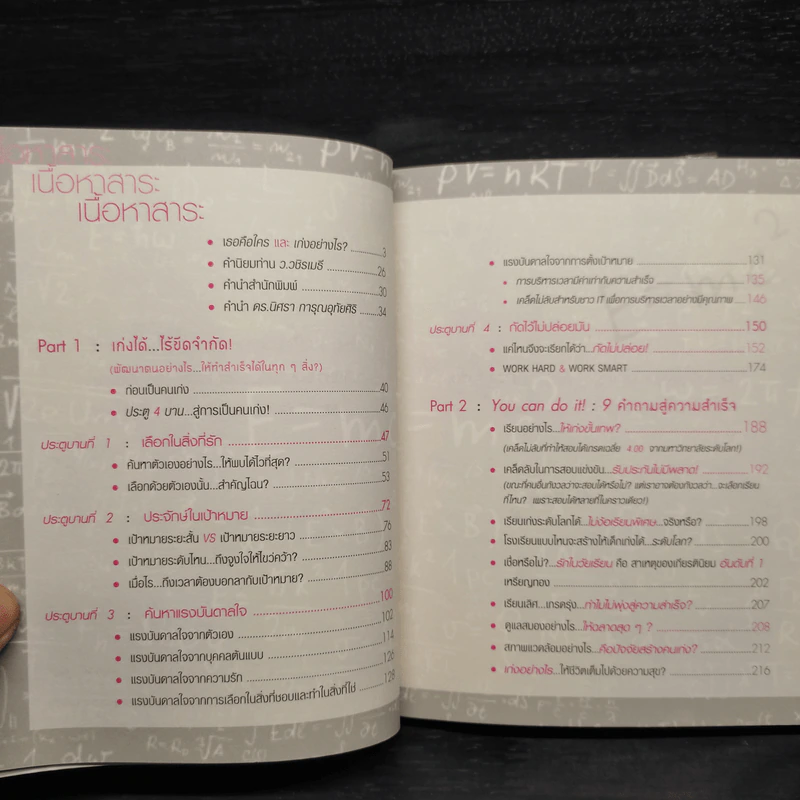 เนื้อหาสาระ
เนื้อหาสาระ
• เธอคือใคร และ เก่งอย่างไร? ............3
• คำนิยมท่าน ว.วชิรเมธี ............26
• คำนำสำนักพิมพ์ ............30
• คำนำ ดร.นิศรา การุณอุทัยศิริ ............34
Part 1 : เก่งได้...ไร้ขีดจำกัด!
(พัฒนาตนอย่างไร...ให้ทำสำเร็จได้ในทุก ๆ สิ่ง?)
• ก่อนเป็นคนเก่ง ............40
• ประตู 4 บาน...สู่การเป็นคนเก่ง! ............46
ประตูบานที่ 1 : เลือกในสิ่งที่รัก ............47
• ค้นหาตัวเองอย่างไร...ให้พบได้ไวที่สุด? ............51
• เลือกด้วยตัวเองนั้น...สำคัญไฉน? ............53
ประตูบานที่ 2 : ประจักษ์ในเป้าหมาย ............72
• เป้าหมายระยะสั้น VS เป้าหมายระยะยาว ............76
• เป้าหมายระดับไหน...ถึงจูงใจให้ไขว่คว้า? ............83
• เมื่อไร...ถึงเวลาต้องบอกลากับเป้าหมาย? ............88
ประตูบานที่ 3 : ค้นหาแรงบันดาลใจ ............100
• แรงบันดาลใจจากตัวเอง ............102
• แรงบันดาลใจจากบุคคลต้นแบบ ............114
• แรงบันดาลใจจากความรัก ............126
• แรงบันดาลใจจากการเลือกในสิ่งที่ชอบและทำในสิ่งที่ใช่ ............128
PV = nRT
• แรงบันดาลใจจากการตั้งเป้าหมาย ............131
• การบริหารเวลามีค่าเท่ากับความสำเร็จ ............135
• เคล็ดไม่ลับสำหรับชาว IT เพื่อการบริหารเวลาอย่างมีคุณภาพ ............146
ประตูบานที่ 4 : กัดไว้ไม่ปล่อยมัน ............150
• แค่ไหนจึงจะเรียกได้ว่า...กัดไม่ปล่อย! ............152
• WORK HARD & WORK SMART ............174
Part 2 : You can do it! : 9 คำถามสู่ความสำเร็จ
• เรียนอย่างไร...ให้เก่งขั้นเทพ? ............188
(เคล็ดไม่ลับที่ทำให้สอบได้เกรดเฉลี่ย 4.00 จากมหาวิทยาลัยระดับโลก!)
• เคล็ดลับในการสอบแข่งขัน...รับประกันไม่มีพลาด! ............192
(ขณะที่คนอื่นกังวลว่าจะสอบได้หรือไม่? แต่เราอาจต้องกังวลว่า...จะเลือกเรียน
ที่ไหน? เพราะสอบได้หลายที่ในคราวเดียว!)
• เรียนเก่งระดับโลกได้...ไม่ง้อเรียนพิเศษ...จริงหรือ? ............198
• โรงเรียนแบบไหนจะสร้างให้เด็กเก่งได้...ระดับโลก? ............200
• เชื่อหรือไม่?...รักในวัยเรียน คือ สาเหตุของเกียรตินิยม อันดับที่ 1
เหรียญทอง ............202
• เรียนเลิศ...เกรดรุ่ง...ทำไมไม่พุ่งสู่ความสำเร็จ? ............207
• ดูแลสมองอย่างไร...ให้ฉลาดสุด ๆ ? ............208
• สภาพแวดล้อมอย่างไร...คือปัจจัยสร้างคนเก่ง? ............212
• เก่งอย่างไร...ให้ชีวิตเต็มไปด้วยความสุข? ............216